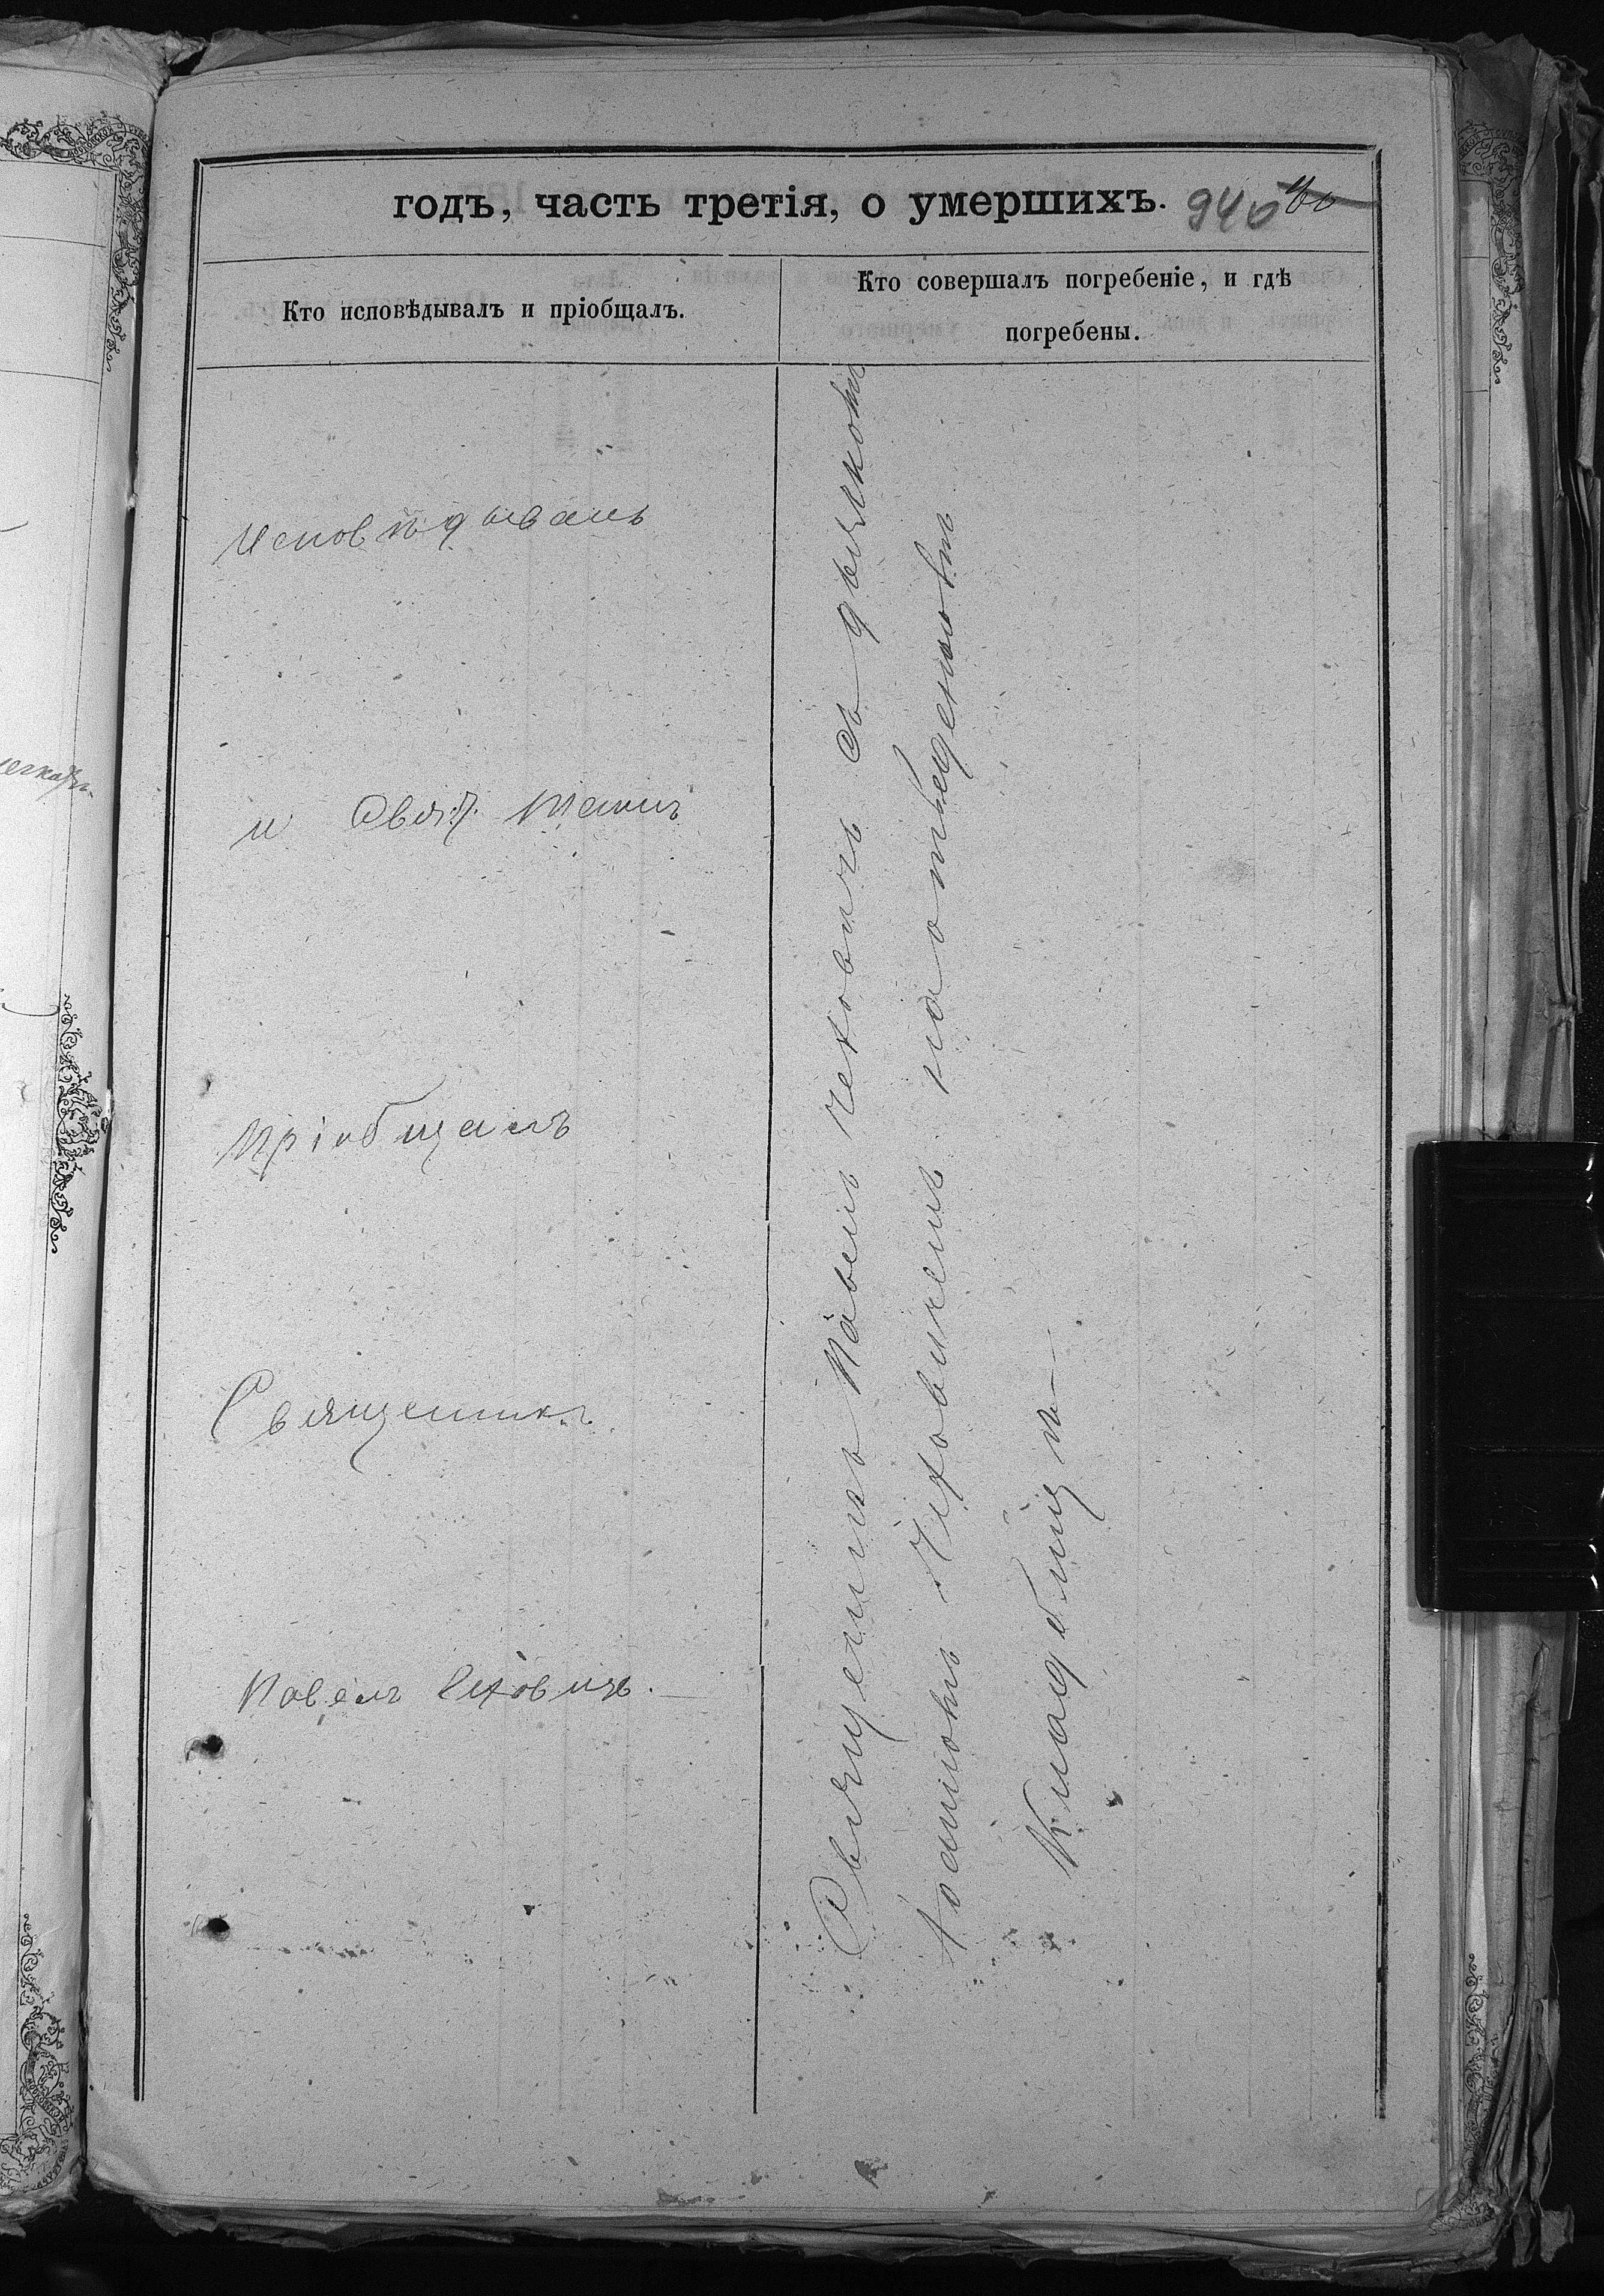 годъ, часть третія, о умершихъ. 940
Кто исповѣдывалъ и пріобщалъ.
Кто совершалъ погребеніе, и гдѣ
погребены.
Исповѣдывалъ
и Свят. Таинъ
Пріобщалъ
Священникъ
Павелъ Еховичъ.
Священникъ Павелъ Чеховичъ съ дьячкомъ
Чеховичемъ на отведенномъ
Кладбищѣ